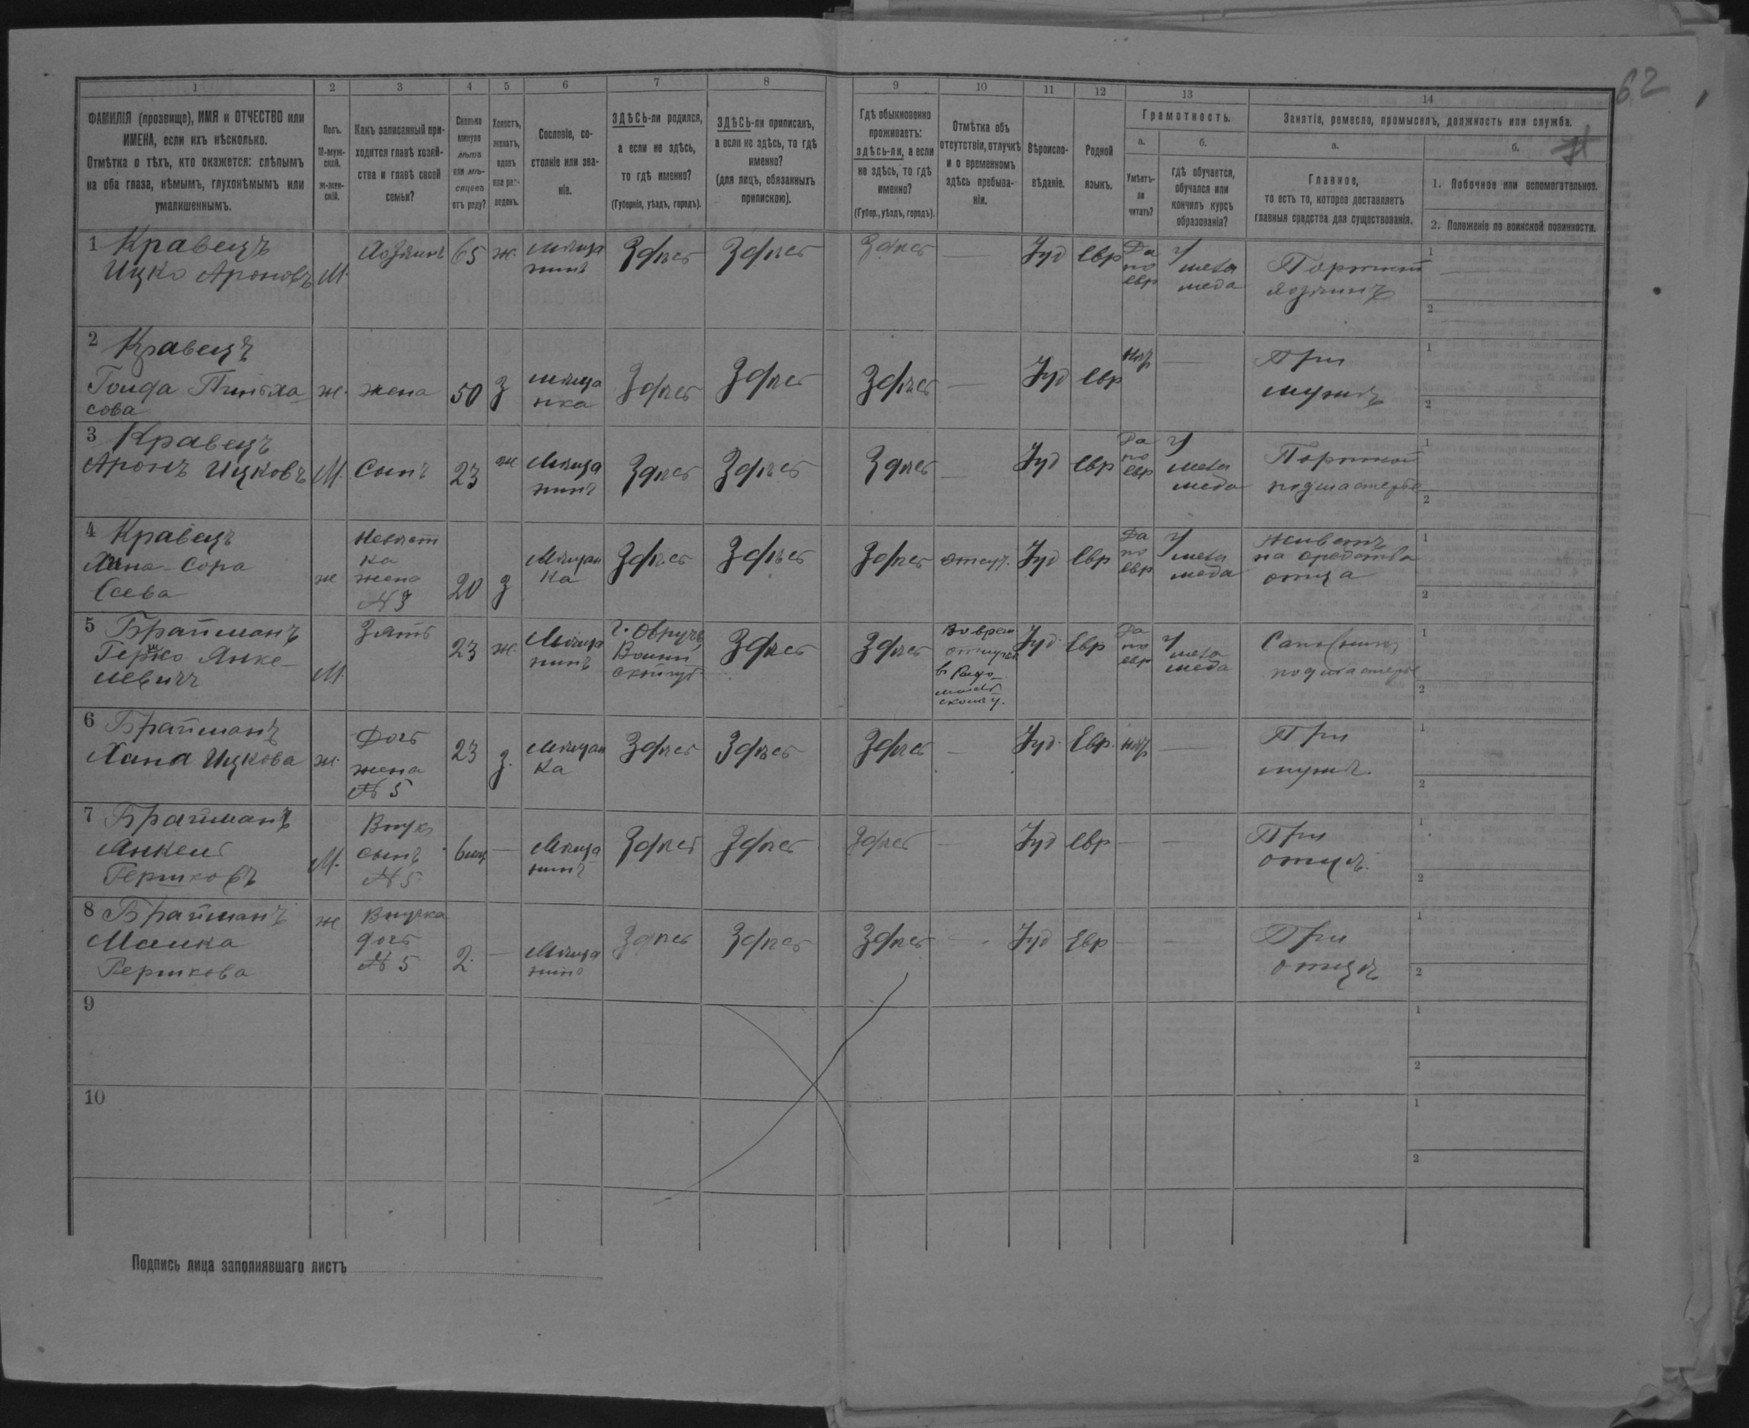 62
1 2 3 4 5 6 7 8 9 10 11 12 13 14
ФАМИЛІЯ (прозвище), ИМЯ и ОТЧЕСТВО или
ИМЕНА, если ихъ нѣсколько.
Отмѣтка о тѣхъ, кто окажется: слѣпымъ
на оба глаза, нѣмымъ, глухонѣмымъ или
умалишеннымъ.
Полъ.
М-муж-
ской.
ж-жен-
скій.
Какъ записанный при-
ходится главѣ хозяй-
ства и главѣ своей
семьи?
Сколько
минуло
лѣтъ
или мѣ-
сяцевъ
отъ роду?
Холостъ,
женатъ,
вдовъ
или раз-
веденъ.
Сословіе, со-
стояніе или зва-
ніе.
ЗДѢСЬ-ли родился,
а если не здѣсь,
то гдѣ именно?
(Губернія, уѣздъ, городъ).
ЗДѢСЬ-ли приписанъ,
а если не здѣсь, то гдѣ
именно?
(для лицъ, обязанныхъ
припискою).
Гдѣ обыкновенно
проживаетъ:
здѣсь-ли, а если
не здѣсь, то гдѣ
именно?
(Губер., уѣздъ, городъ).
Отмѣтка объ
отсутствіи, отлучкѣ
и о временномъ
здѣсь пребыва-
ніи.
Вѣроиспо-
вѣданіе.
Родной
языкъ.
Грамотность.
а.
Умѣетъ-
ли
читать?
б.
гдѣ обучается,
обучался или
кончилъ курсъ
образованія?
Занятіе, ремесло, промыселъ, должность или служба.
а.
Главное,
то есть то, которое доставляетъ
главныя средства для существованія.
б.
1. Побочное или вспомогательное.
2. Положеніе по воинской повинности.
1 Кравецъ
Ицко Ароновъ М. Хозяинъ 65 ж. мѣща
нинъ Здѣсь Здѣсь Здѣсь — Іуд Евр Да
по
евр У
мела
меда Портной
хозяинъ 1 2
2 Кравецъ
Гоида Пиньха
сова ж. жена 50 з мѣща
нка Здѣсь Здѣсь Здѣсь — Іуд Евр нѣтъ — При
мужѣ 1 2
3 Кравецъ
Аронъ Ицковъ М. Сынъ 23 ж мѣща
нинъ Здѣсь Здѣсь Здѣсь — Іуд Евр Да
по
евр У
мела
меда Портной
подмастерье 1 2
4 Кравецъ
Хана-Сора
ж Невѣст
ка
жена
№3 20 з Мѣщан
ка Здѣсь Здѣсь Здѣсь отсут. Іуд Евр Да
по
евр У
мела
меда Живетъ
на средства
отца 1 2
5 Брайманъ
Гершко Янке-
левичъ М. Зять 23 ж. Мѣща
нинъ г. Овручъ
Волын
ской губ Здѣсь Здѣсь Іуд Евр Да
по
евр У
мела
меда Сапожникъ
подмастерье 1 2
6 Брайманъ
Хана Ицкова ж. Дочь
жена
№5 23 з. Мѣщан
ка Здѣсь Здѣсь Здѣсь — Іуд. Евр. нѣтъ — При
мужѣ. 1 2
7 Брайманъ
Янкель
Гершковъ М. Внукъ
сынъ
№5 6 мѣс — Мѣща
нинъ Здѣсь Здѣсь Здѣсь — Іуд Евр — — При
отцѣ. 1 2
8 Брайманъ
Малка
Гершкова ж Внучка
дочь
№5 2. — Мѣща
нинъ Здѣсь Здѣсь Здѣсь — Іуд Евр — — При
отцѣ 1 2
9 1 2
10 1 2
Подпись лица заполнявшаго листъ